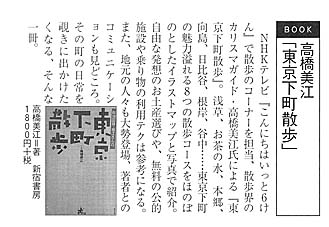 BOOK
高橋美江
「東京下町散歩」
NHKテレビ『こんにちはいっと6け
ん』で散歩のコーナーを担当。散歩界の
カリスマガイド・高橋美江氏による『東
京下町散歩』。浅草、お茶の水、本郷、
向島、日比谷、根岸、谷中……東京下町
の魅力溢れる8つの散歩コースをほのぼ
のとしたイラストマップと写真で紹介。
自由な発想のお土産選びや、無料の公的
施設や乗り物の利用テクは参考になる。
また、地元の人々も大勢登場、著者との
コミュニケーシ
ョンも見どころ。
その町の日常を
覗きに出かけた
くなる、そんな
一冊。
東京
下町
散歩
高橋美江=著 新宿書房
1800円+税